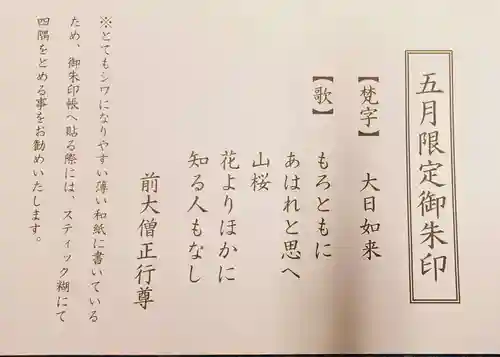 五月限定御朱印
【梵字】 大日如来
【歌】 もろともに
あはれと思へ
山桜
花よりほかに
知る人もなし
前大僧正行尊
※とてもシワになりやすい薄い和紙に書いている
ため、御朱印帳へ貼る際には、スティック糊にて
四隅をとめる事をお勧めいたします。